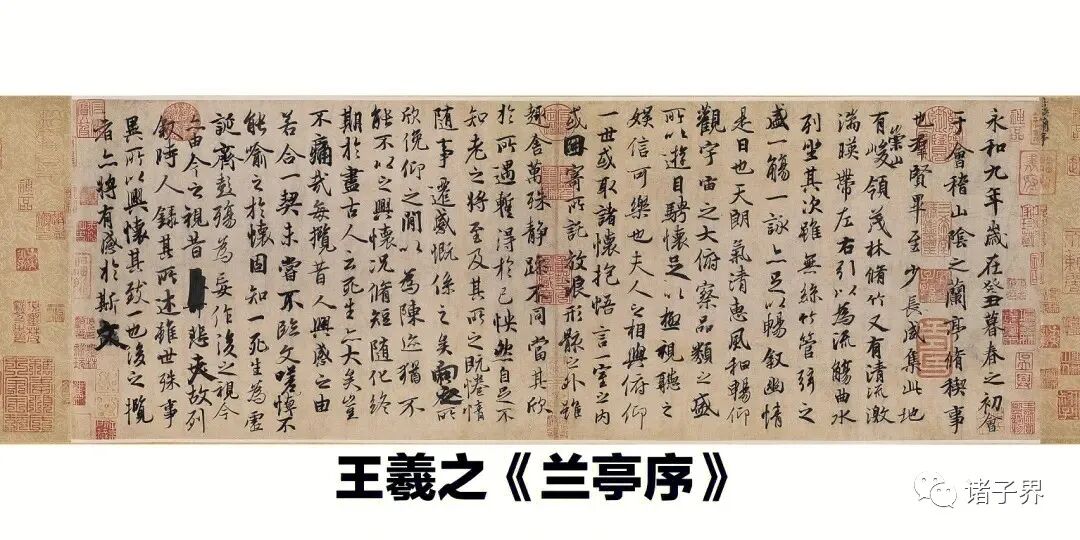 永和九年歲在癸丑暮春之初會
于會稽山陰之蘭亭脩稧事
也羣賢畢至少長咸集此地
有崇山峻領茂林脩竹又有清流激
湍暎帶左右引以為流觴曲水
列坐其次雖無絲竹管弦之
盛一觴一詠亦足以暢敘幽情
是日也天朗氣清惠風和暢仰
觀宇宙之大俯察品類之盛
所以遊目騁懷足以極視聽之
娛信可樂也夫人之相與俯仰
一世或取諸懷抱悟言一室之內
或因寄所託放浪形骸之外雖
趣舍萬殊靜躁不同當其欣
於所遇暫得於己怏然自足不
知老之將至及其所之既惓情
隨事遷感慨係之矣向之所
欣俛仰之閒以為陳迹猶不
能不以之興懷況脩短隨化終
期於盡古人云死生亦大矣豈
不痛哉每攬昔人興感之由
若合一契未嘗不臨文嗟悼不
能喻之於懷固知一死生為虛
誕齊彭殤為妄作後之視今
亦由今之視昔悲夫故列
敘時人錄其所述雖世殊事
異所以興懷其致一也後之攬
者亦將有感於斯文
王羲之《兰亭序》
诸子界